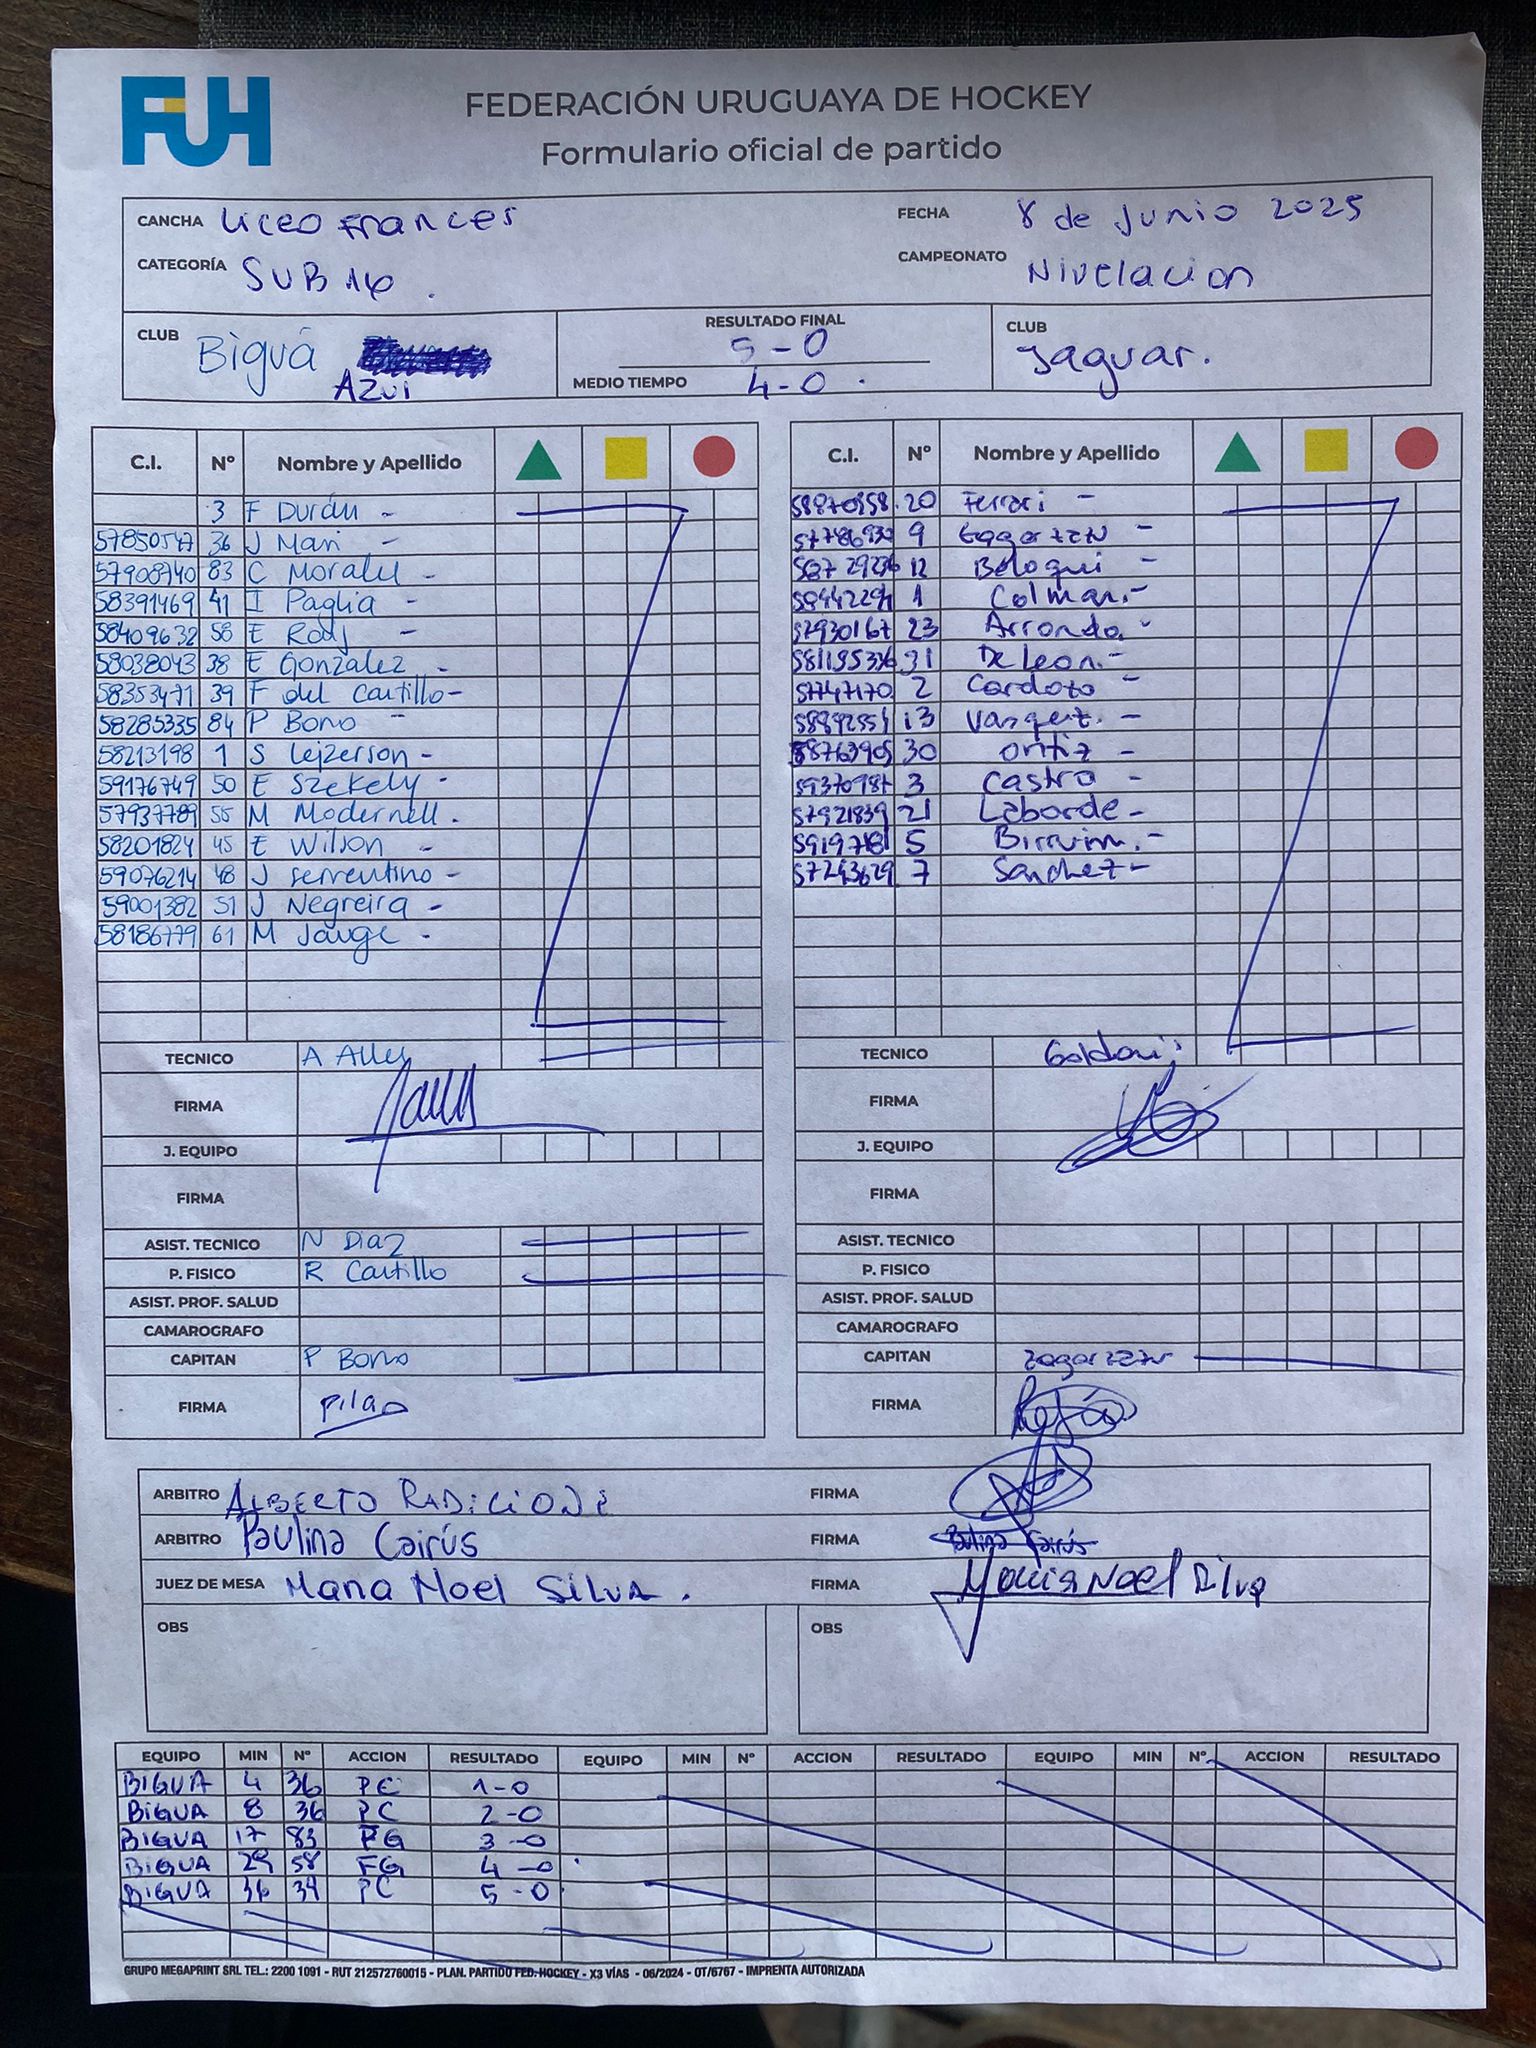 FUH
FEDERACIÓN URUGUAYA DE HOCKEY
Formulario oficial de partido
CANCHA Liceo Frances FECHA 8 de Junio 2025
CATEGORÍA SUB 16. CAMPEONATO Nivelacion
CLUB Biguá Azul RESULTADO FINAL 5-0 CLUB Jaguar.
MEDIO TIEMPO 4-0.
C.I. Nº Nombre y Apellido C.I. Nº Nombre y Apellido
3 F Durán - 20 Ferrari -
57850547 36 J Mari - 9 -
57908740 83 C - 12 Beloqui -
58391469 41 I Paglia - 1 Colman.-
58409632 58 E - 57930167 23 Arrondo -
58038043 38 E Gonzalez - 31 De Leon.-
58353471 39 F del Castillo - 57747170 2 Cardozo -
58285335 84 P Bono - 13 Vasquez. -
58213198 1 S Lejzerson - 58763905 30 Ortiz -
59176749 50 E Szekely - 59370987 3 Castro -
57937789 55 M Modernell. 57921839 21 Laborde -
58201824 45 E Wilson - 5 -
59076214 48 J Serrentino - 57243629 7 Sanchez -
59001382 51 J Negreira -
58186779 61 M Jauge -
TECNICO A TECNICO Goldoni
FIRMA FIRMA
J. EQUIPO J. EQUIPO
FIRMA FIRMA
ASIST. TECNICO N Diaz ASIST. TECNICO
P. FISICO R Castillo P. FISICO
ASIST. PROF. SALUD ASIST. PROF. SALUD
CAMAROGRAFO CAMAROGRAFO
CAPITAN P Bono CAPITAN
FIRMA Pilar FIRMA
ARBITRO ALBERTO RADICIONI FIRMA
ARBITRO Paulina Cairús FIRMA Paulina Cairús
JUEZ DE MESA Maria Noel SILVA. FIRMA Maria Noel Silva
OBS OBS
EQUIPO MIN Nº ACCION RESULTADO EQUIPO MIN Nº ACCION RESULTADO EQUIPO MIN Nº ACCION RESULTADO
BIGUA 4 36 PC 1-0
BIGUA 8 36 PC 2-0
BIGUA 17 83 FG 3-0
BIGUA 29 58 FG 4-0
BIGUA 36 39 PC 5-0
GRUPO MEGAPRINT SRL TEL.: 2200 1091 - RUT 212572760015 - PLAN. PARTIDO FED. HOCKEY - X3 VÍAS - 06/2024 - OT/6767 - IMPRENTA AUTORIZADA